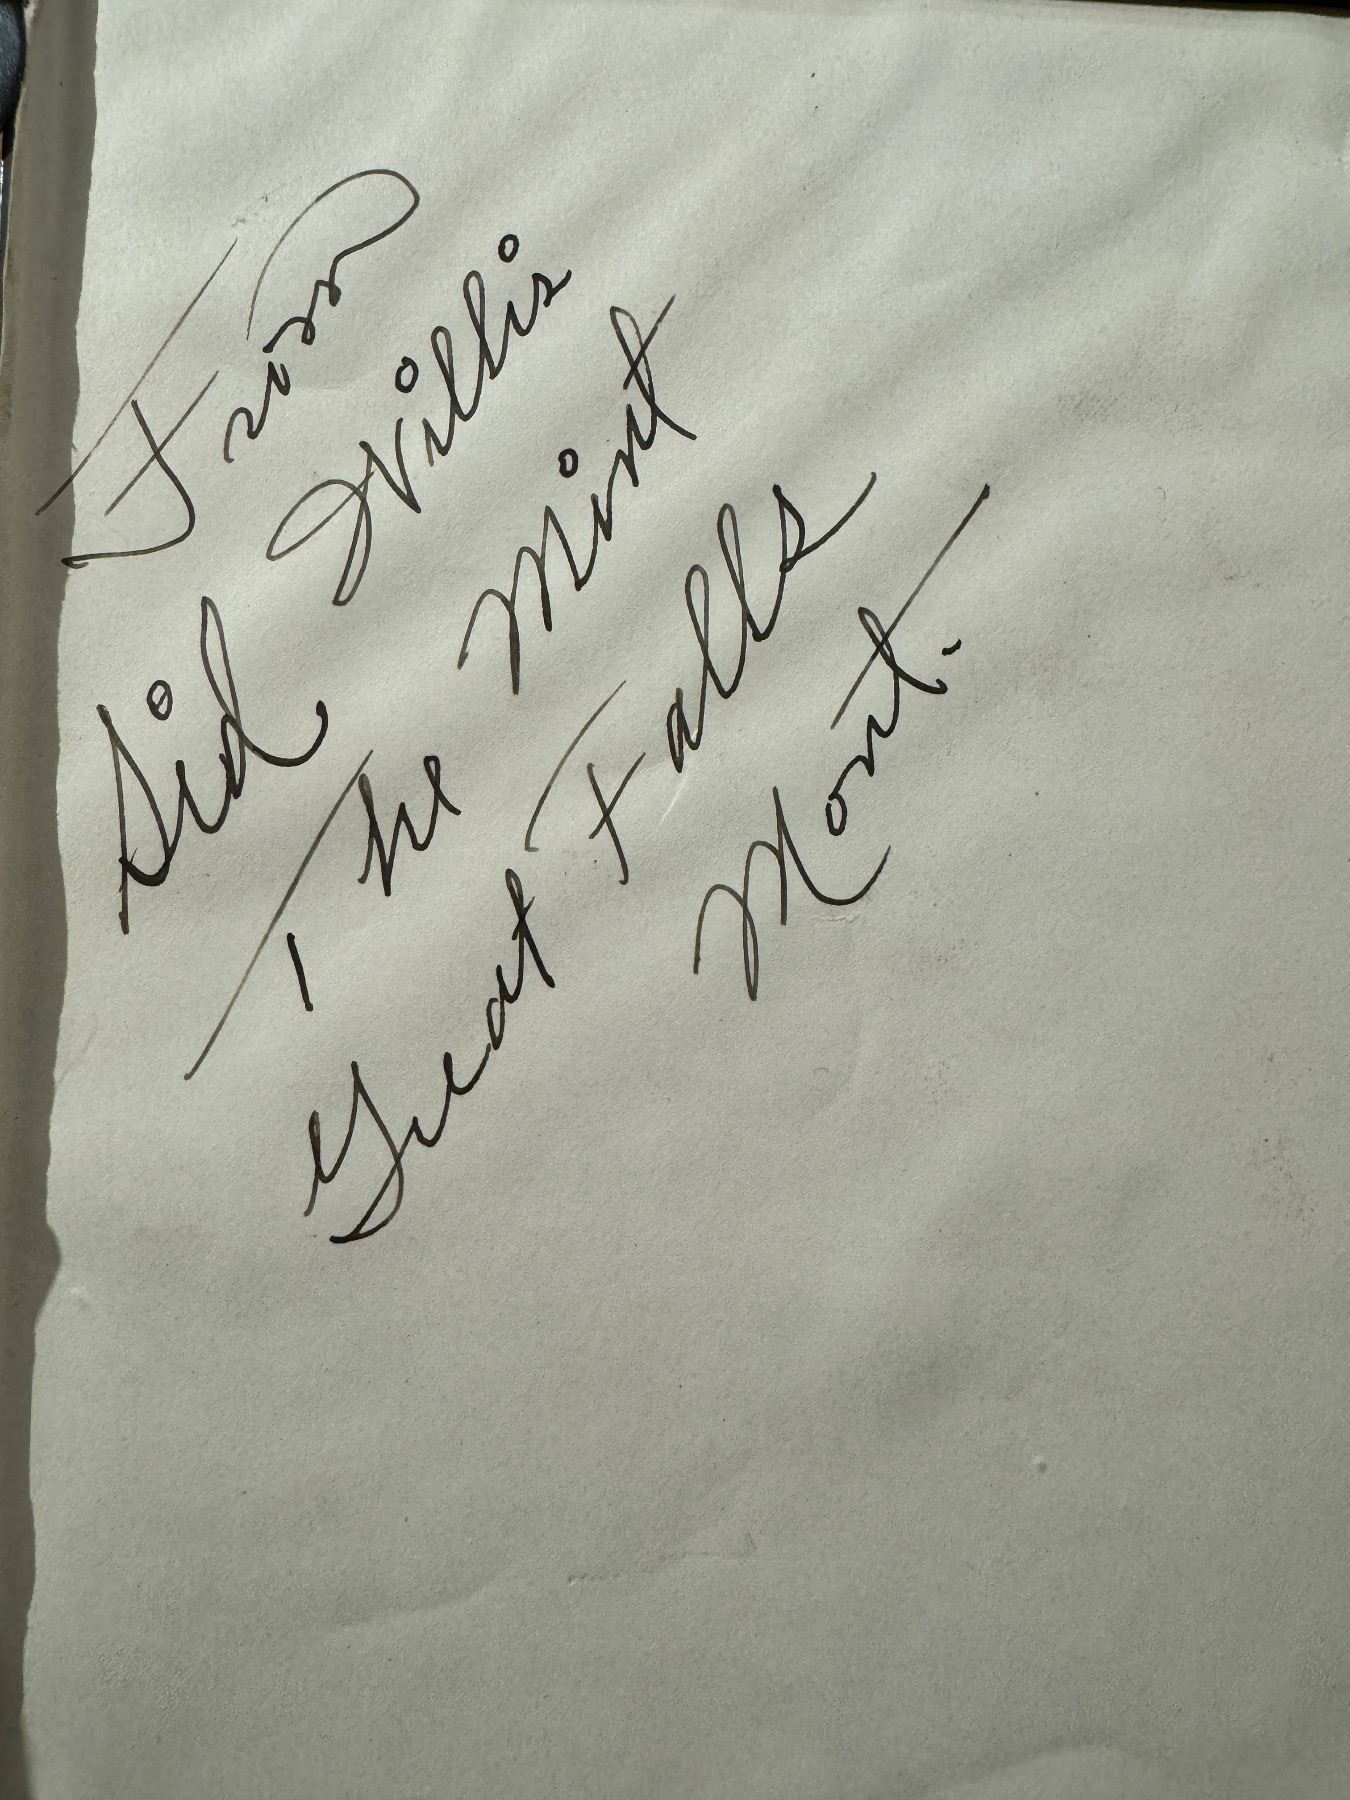 From
Sid Willis
The Mint
Great Falls
Mont.